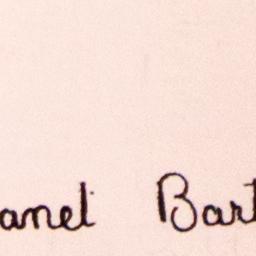 anet Bart